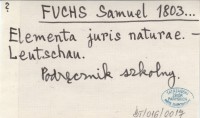 2
FUCHS Samuel 1803...
Elementa juris naturae. –
Leutschau.
Podręcznik szkolny.